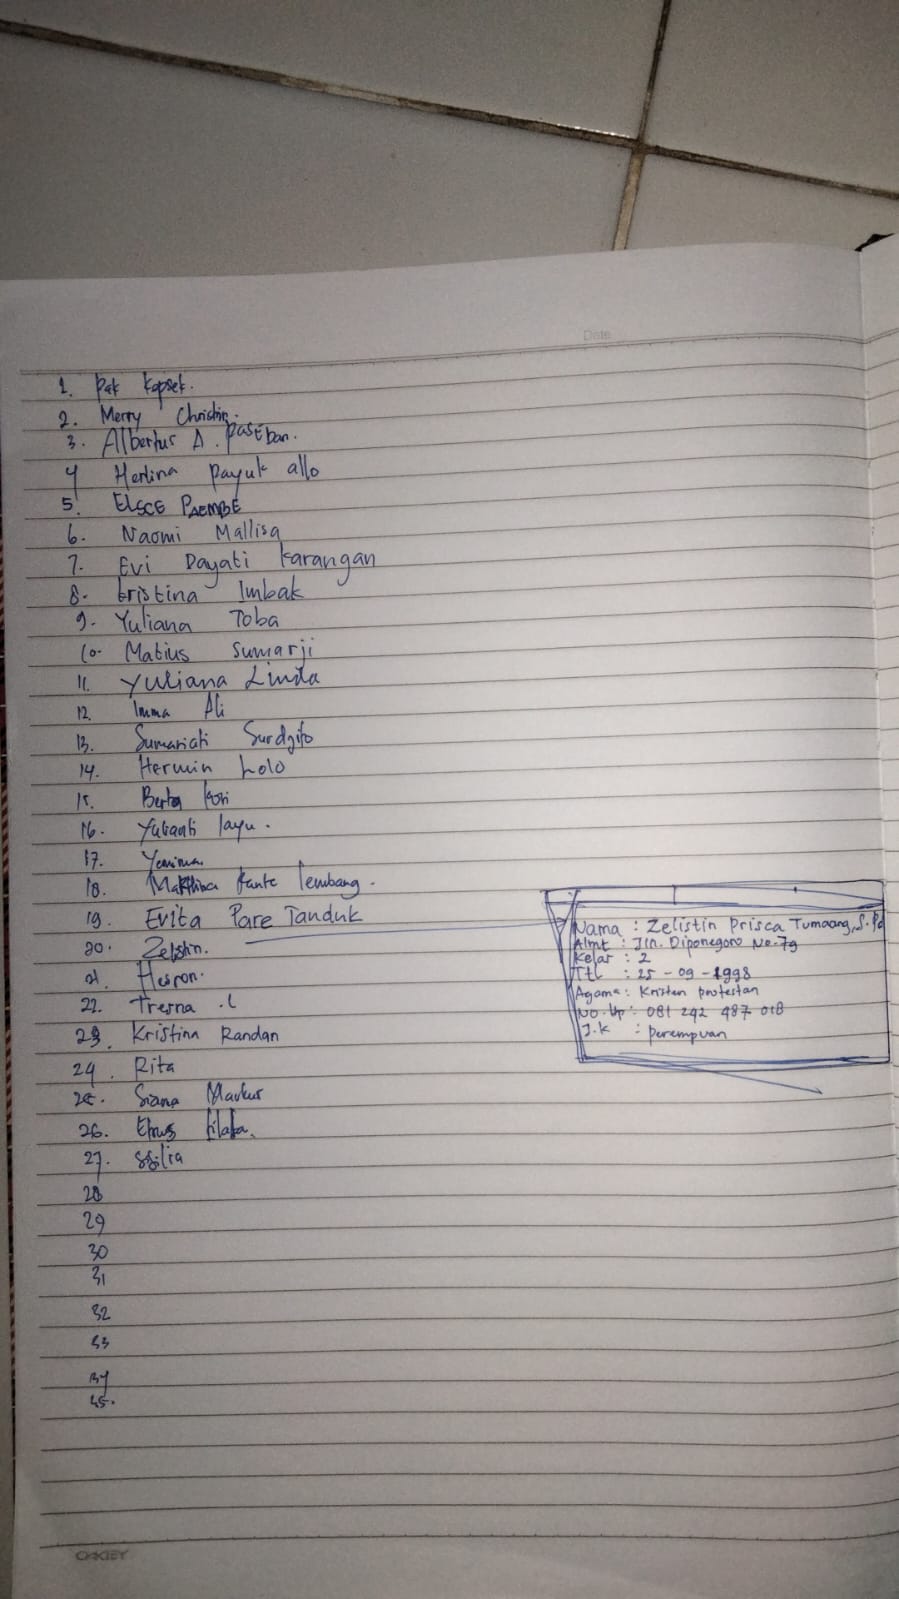 Date
1. Pak Kapsek.
2. Merry Christin.
3. Albertus A. Paseban.
4 Herlina Payuk allo
5. ELSCE PAEMBE
6. Naomi Mallisa
7. Evi Dayati Karangan
8. Kristina Imbak
9. Yuliana Toba
10. Matius Sumarji
11. Yuliana Linda
12. Imma Ali
13. Sumariati Surdjito
14. Hermin Lolo
15. Berta
16. Yulianti layu.
17. Yemima
18. Marthina Kante lembang.
19. Evita Pare Tanduk
20. Zelistin.
21. Heiron.
22. Tresna .L
23. Kristina Randan
24. Rita
25. Siana Markus
26.
27. ssilia
28
29
30
31
32
33
34
35.
Nama : Zelistin Prisca Tumaang, S.Pd
Almt : Jln. Diponegoro No.79
Kelas : 2
Ttl : 25 - 09 - 1998
Agama : Kristen protestan
No. Hp : 081 242 487 018
J.k : perempuan
OKEY